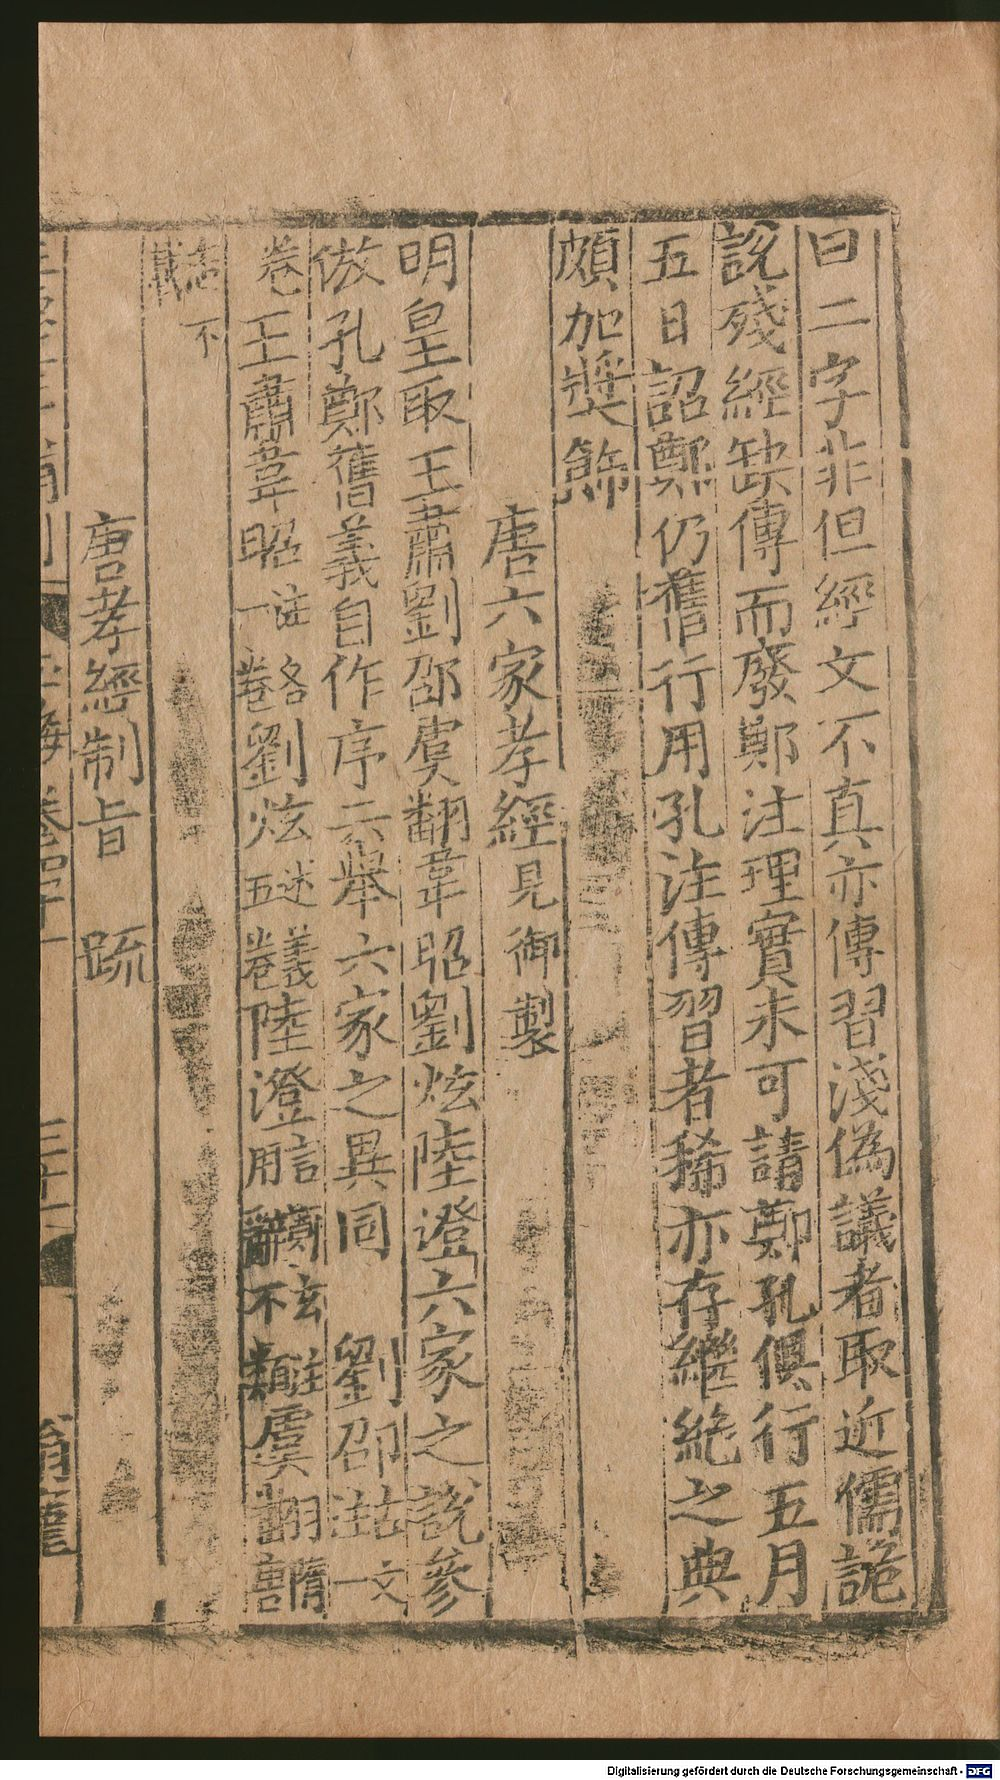 曰二字非但經文不真亦傳習淺偽議者取近儒詭
說殘經缺傳而廢鄭注理實未可請鄭孔俱行五月
五日詔鄭仍舊行用孔注傳習者稀亦存繼絶之典
頗加奬飾
唐六家孝經見御製
明皇取王肅劉邵虞翻韋昭劉炫陸澄六家之說參
倣孔鄭舊義自作序云舉六家之異同　劉邵古文注一
卷王肅韋昭注一卷劉炫述義五卷陸澄言用辭不類鄭玄注虞翻隋唐
志不載
唐孝經制旨　疏
Digitalisierung gefördert durch die Deutsche Forschungsgemeinschaft - DFG